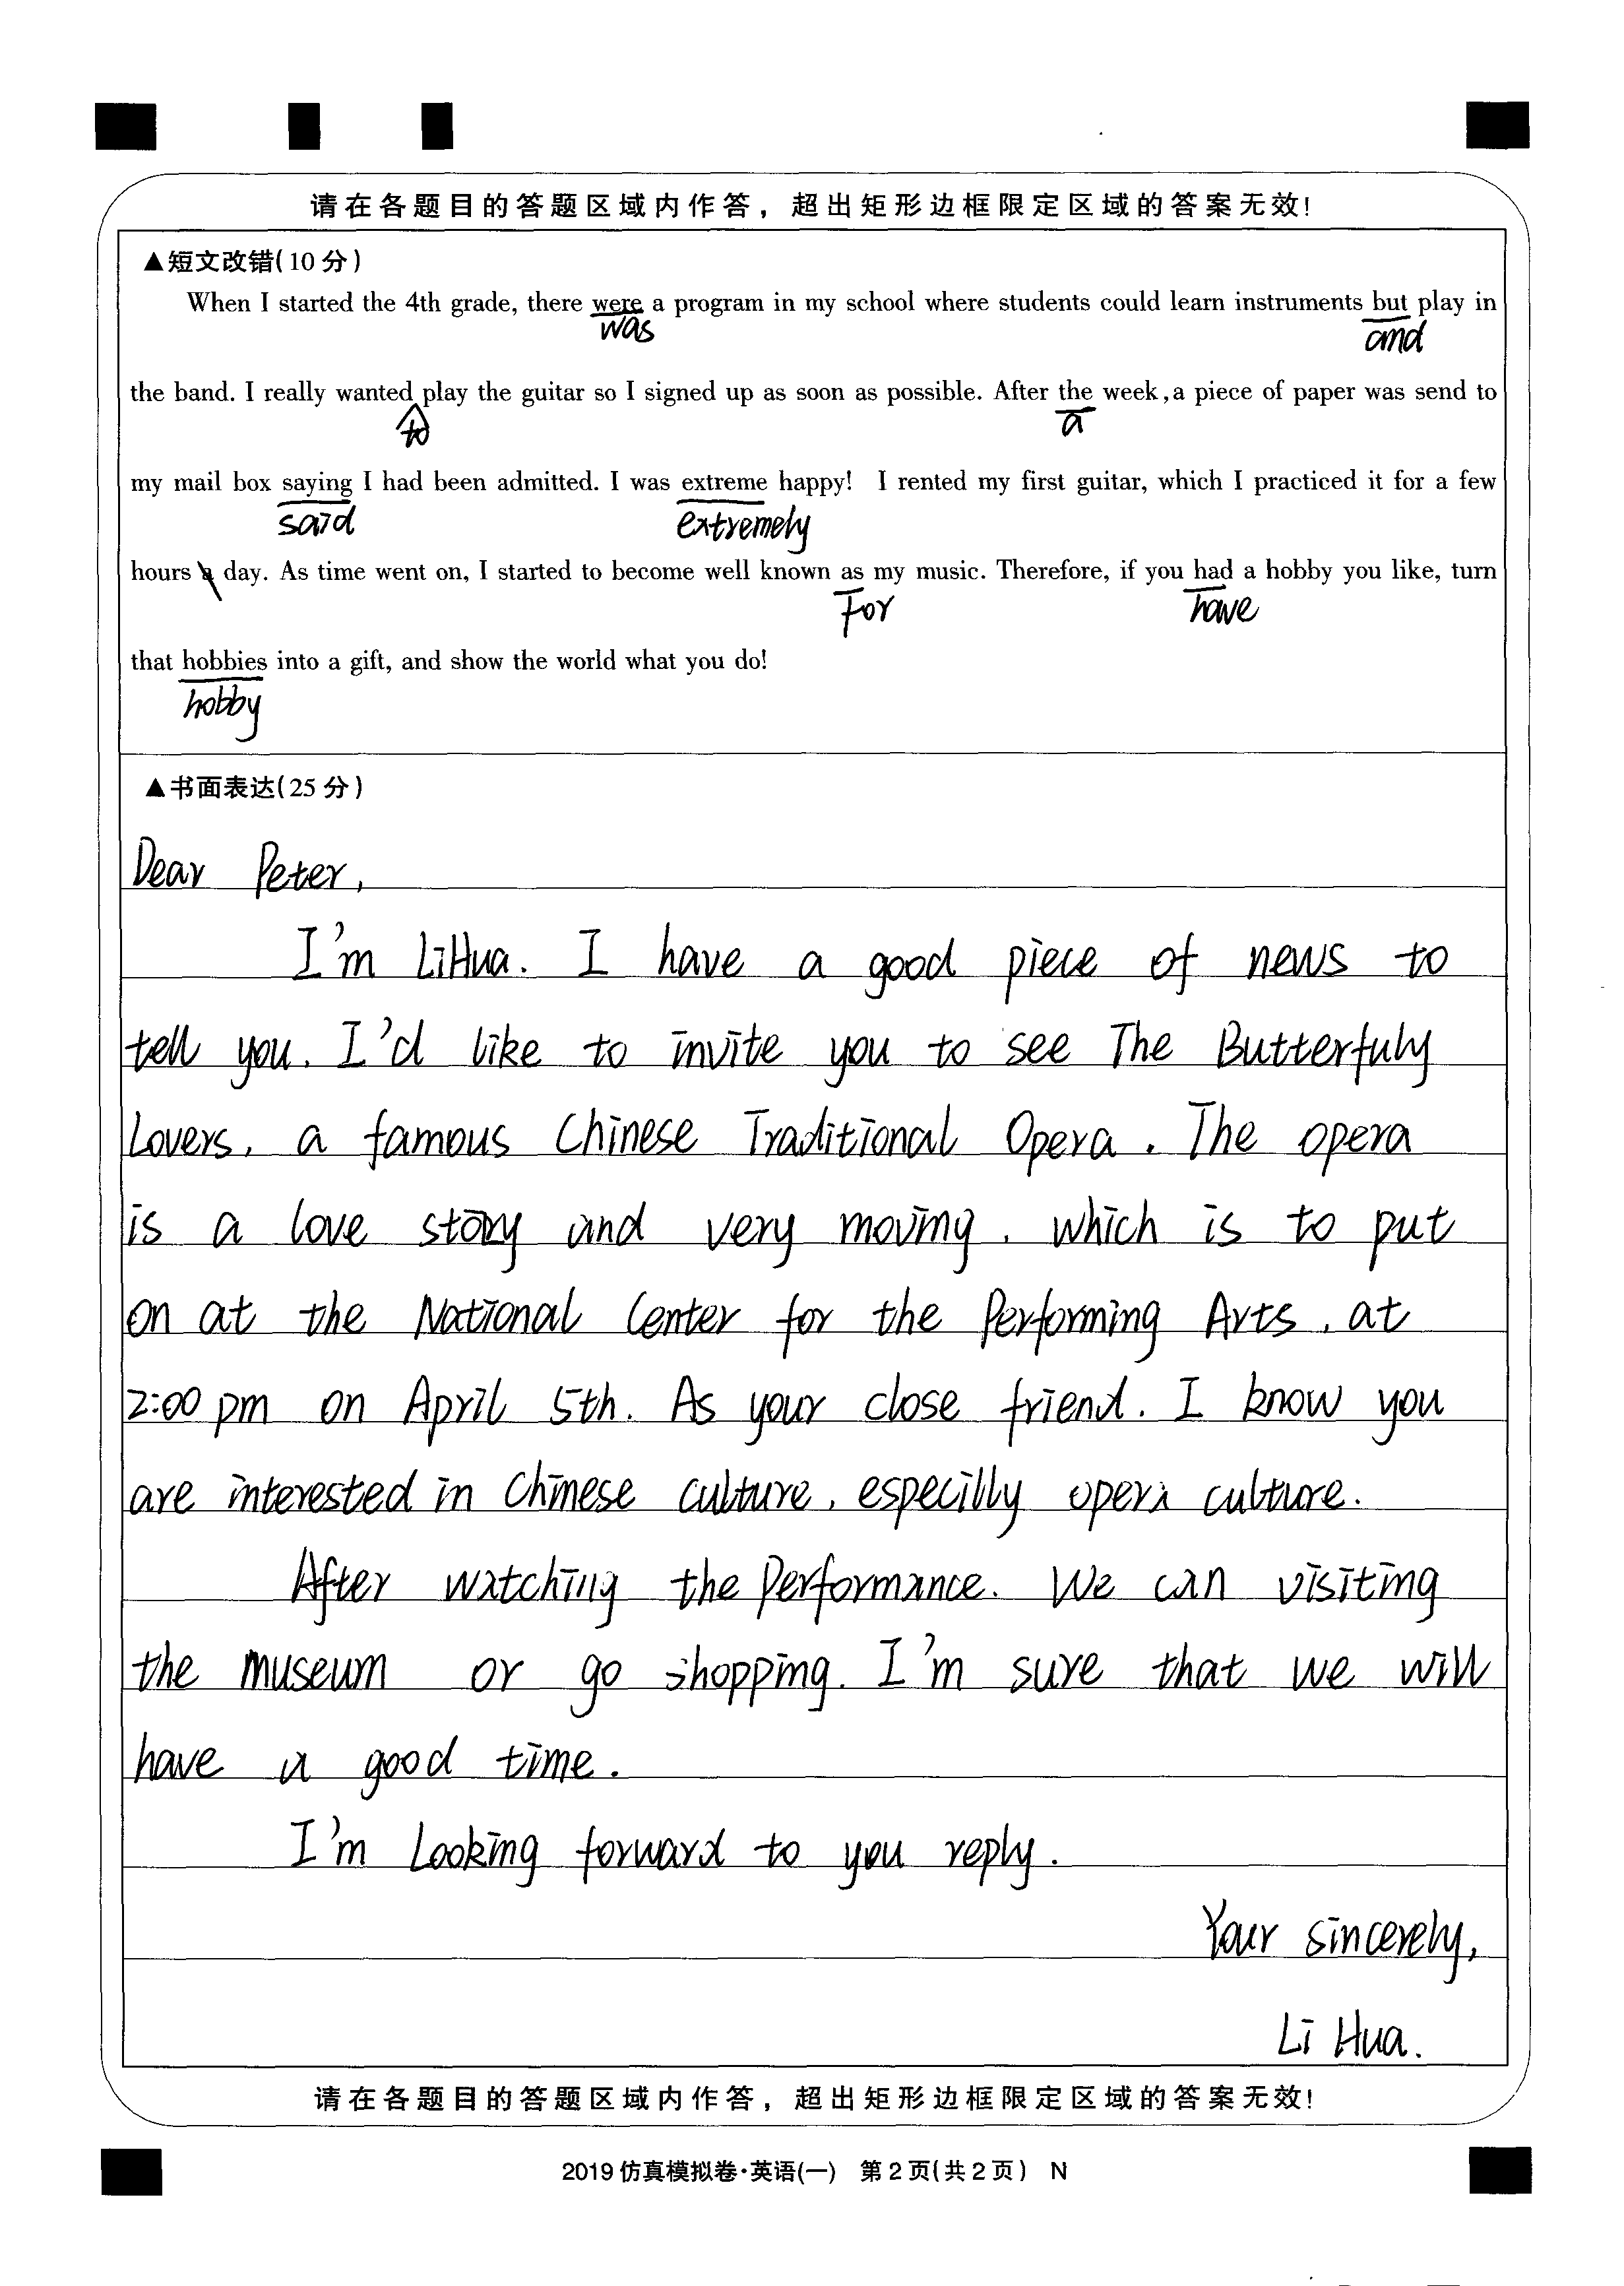 请在各题目的答题区域内作答，超出矩形边框限定区域的答案无效!
▲短文改错(10分)
When I started the 4th grade, there were a program in my school where students could learn instruments but play in
was and
the band. I really wanted play the guitar so I signed up as soon as possible. After the week,a piece of paper was send to
to a
my mail box saying I had been admitted. I was extreme happy! I rented my first guitar, which I practiced it for a few
said extremely
hours a day. As time went on, I started to become well known as my music. Therefore, if you had a hobby you like, turn
For have
that hobbies into a gift, and show the world what you do!
hobby
▲书面表达(25分)
Dear Peter,
I'm LiHua. I have a good piece of news to
tell you. I'd like to invite you to see The Butterfuly
Lovers, a famous Chinese Traditional Opera. The opera
is a love story and very moving. which is to put
on at the National Center for the Performing Arts, at
2:00 pm on April 5th. As your close friend. I know you
are interested in Chinese culture, especilly opera culture.
After watching the Performance. We can visiting
the museum or go shopping. I'm sure that we will
have a good time.
I'm Looking forward to you reply.
Your sincerely,
Li Hua.
请在各题目的答题区域内作答，超出矩形边框限定区域的答案无效!
2019仿真模拟卷·英语(一) 第2页(共2页) N